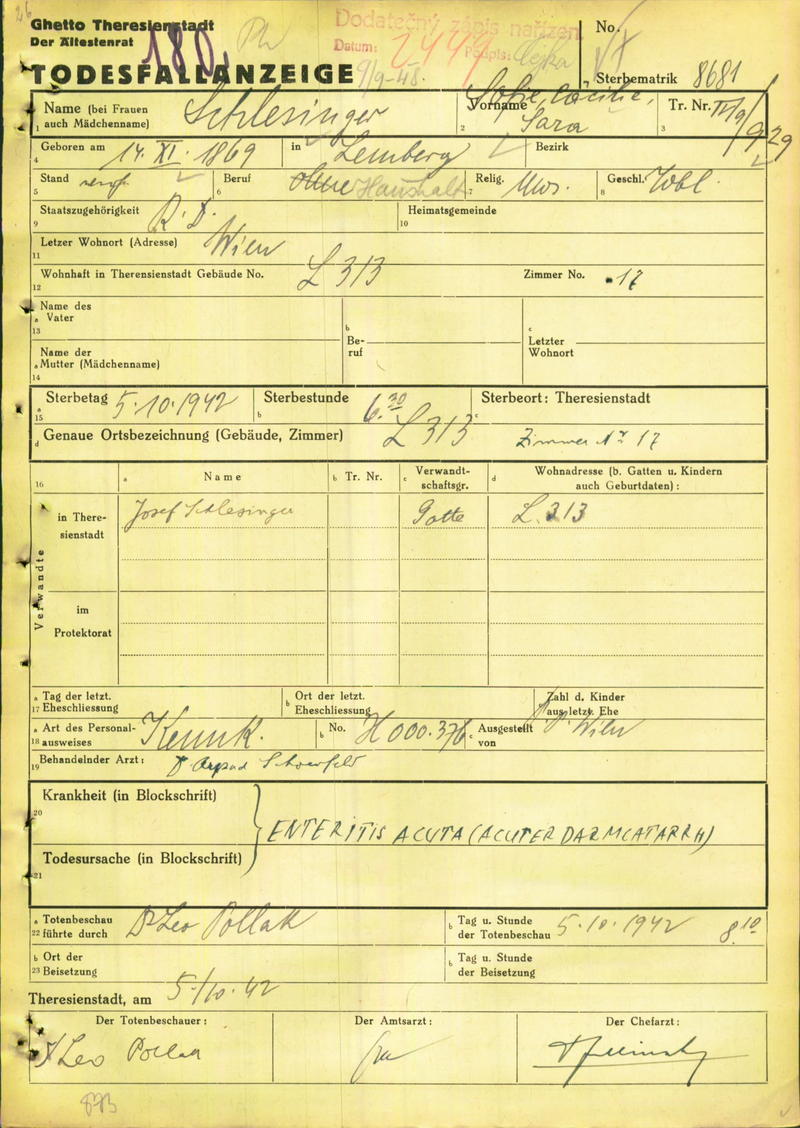 Ghetto Theresienstadt
Der Ältestenrat
180.
Dodatečný zápis nařízen
Datum:
9/9-48.
Podpis:
No.
TODESFALLANZEIGE
Sterbematrik 8681
Name (bei Frauen auch Mädchenname) Schlesinger
1
Vorname Sofie Cäcilie, Sara
2
Tr. Nr. IV/9/929
3
Geboren am 14. XI. 1869
4
in Lemberg
Bezirk
Stand verh.
5
Beruf ohne Haushalt
6
Relig. Mos.
7
Geschl. Wbl.
8
Staatszugehörigkeit R. D.
9
Heimatsgemeinde
10
Letzer Wohnort (Adresse) Wien
11
Wohnhaft in Therensienstadt Gebäude No. L 313
12
Zimmer No. 17
Name des
a Vater
13
b Beruf
c Letzter Wohnort
Name der
a Mutter (Mädchenname)
14
a Sterbetag 5.10.1942
15
Sterbestunde 6.30
b
c Sterbeort: Theresienstadt
d Genaue Ortsbezeichnung (Gebäude, Zimmer) L 313 Zimmer Nr 17
16
a Name
b Tr. Nr.
c Verwandtschaftsgr.
d Wohnadresse (b. Gatten u. Kindern auch Geburtdaten):
Verwandte
in Theresienstadt
Josef Schlesinger Gatte L 313
im Protektorat
a Tag der letzt.
17 Eheschliessung
b Ort der letzt. Eheschliessung
Zahl d. Kinder aus letzt. Ehe
a Art des Personal-
18 ausweises Kennk.
b No. H 000.376
c Ausgestellt von Wien
Behandelnder Arzt: Dr Arpad Schoenfeld
19
Krankheit (in Blockschrift)
20
ENTERITIS ACUTA (ACUTER DARMCATARRH)
Todesursache (in Blockschrift)
21
a Totenbeschau
22 führte durch Dr Leo Pollak
b Tag u. Stunde der Totenbeschau 5.10.1942 8.10
b Ort der
23 Beisetzung
b Tag u. Stunde der Beisetzung
Theresienstadt, am 5./10.42
Der Totenbeschauer:
Der Amtsarzt:
Der Chefarzt:
Dr Leo Pollak